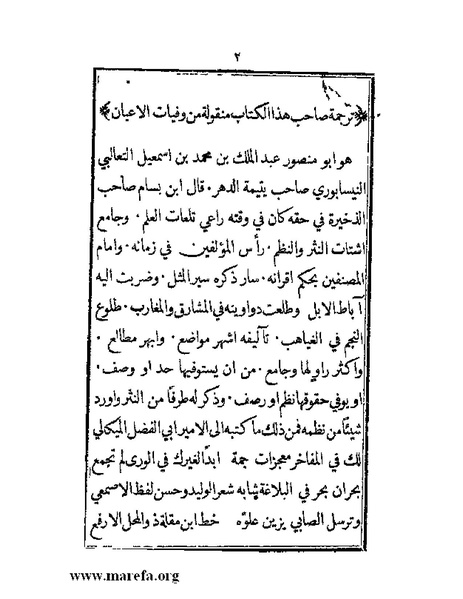 ٢
﴿ترجمة صاحب هذا الكتاب منقولة من وفيات الاعيان﴾
هو ابو منصور عبد الملك بن محمد بن اسمعيل الثعالبي
النيسابوري صاحب يتيمة الدهر. قال ابن بسام صاحب
الذخيرة في حقه كان في وقته راعي تلعات العلم. وجامع
اشتات النثر والنظم. رأس المؤلفين في زمانه. وامام
المصنفين بحكم اقرانه. سار ذكره سير المثل. وضربت اليه
آباط الابل وطلعت دواوينه في المشارق والمغارب. طلوع
النجم في الغياهب. تآليفه اشهر مواضع. وابهر مطالع.
واكثر راوٍ لها وجامع. من ان يستوفيها حد او وصف.
او يوفي حقوقها نظم او رصف. وذكر له طرفًا من النثر واورد
شيئًا من نظمه فمن ذلك ما كتبه الى الامير ابي الفضل الميكالي
لك في المفاخر معجزات جمة ابدًا لغيرك في الورى لم تجمع
بحران بحر في البلاغة شابه شعر الوليد وحسن لفظ الاصمعي
وترسل الصابي يزين علوه خط ابن مقلة ذو المحل الارفع
www.marefa.org